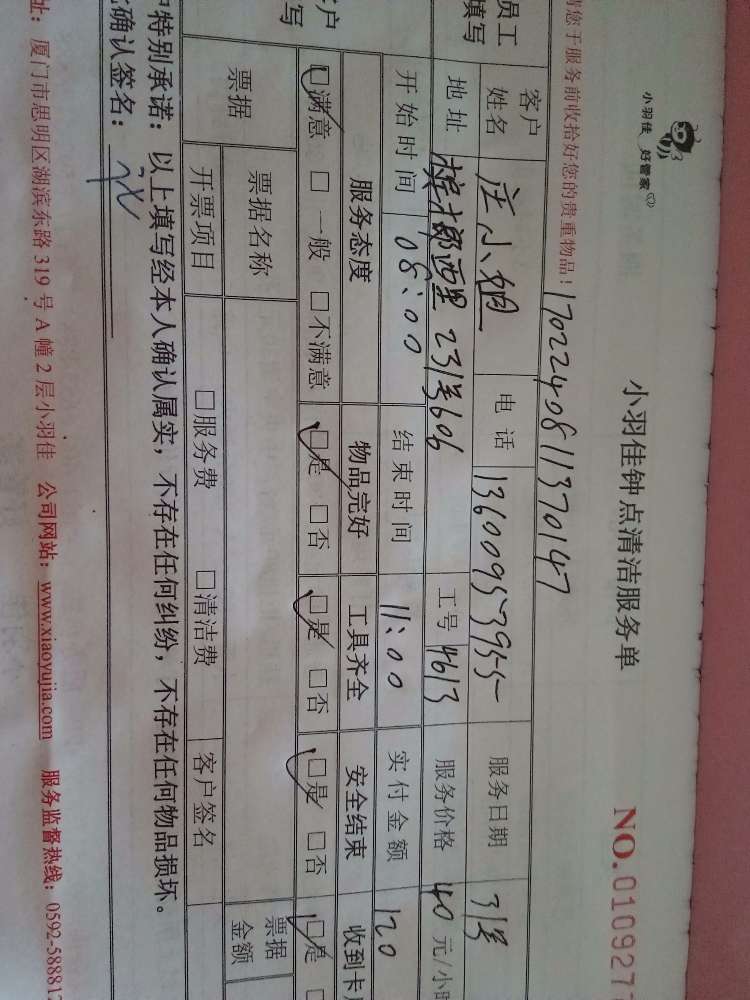 小羽佳 好管家
小羽佳钟点清洁服务单
NO.010927
请您于服务前收拾好您的贵重物品！
17022408113 70147
员工 填写
客户姓名 庄小姐 电话 13600953955 服务日期 31号
地址 槟榔西里231号606 工号 4613 服务价格 40元/小时
开始时间 08:00 结束时间 11:00 实付金额 120
客户 写
服务态度 物品完好 工具齐全 安全结束 收到卡
☑满意 □一般 □不满意 ☑是 □否 ☑是 □否 ☑是 □否 ☑是 □
票据 票据名称 票据金额
开票项目 □服务费 □清洁费 客户签名
户特别承诺：以上填写经本人确认属实，不存在任何纠纷，不存在任何物品损坏。
确认签名：
址：厦门市思明区湖滨东路319号A幢2层小羽佳 公司网站：www.xiaoyujia.com 服务监督热线：0592-58881